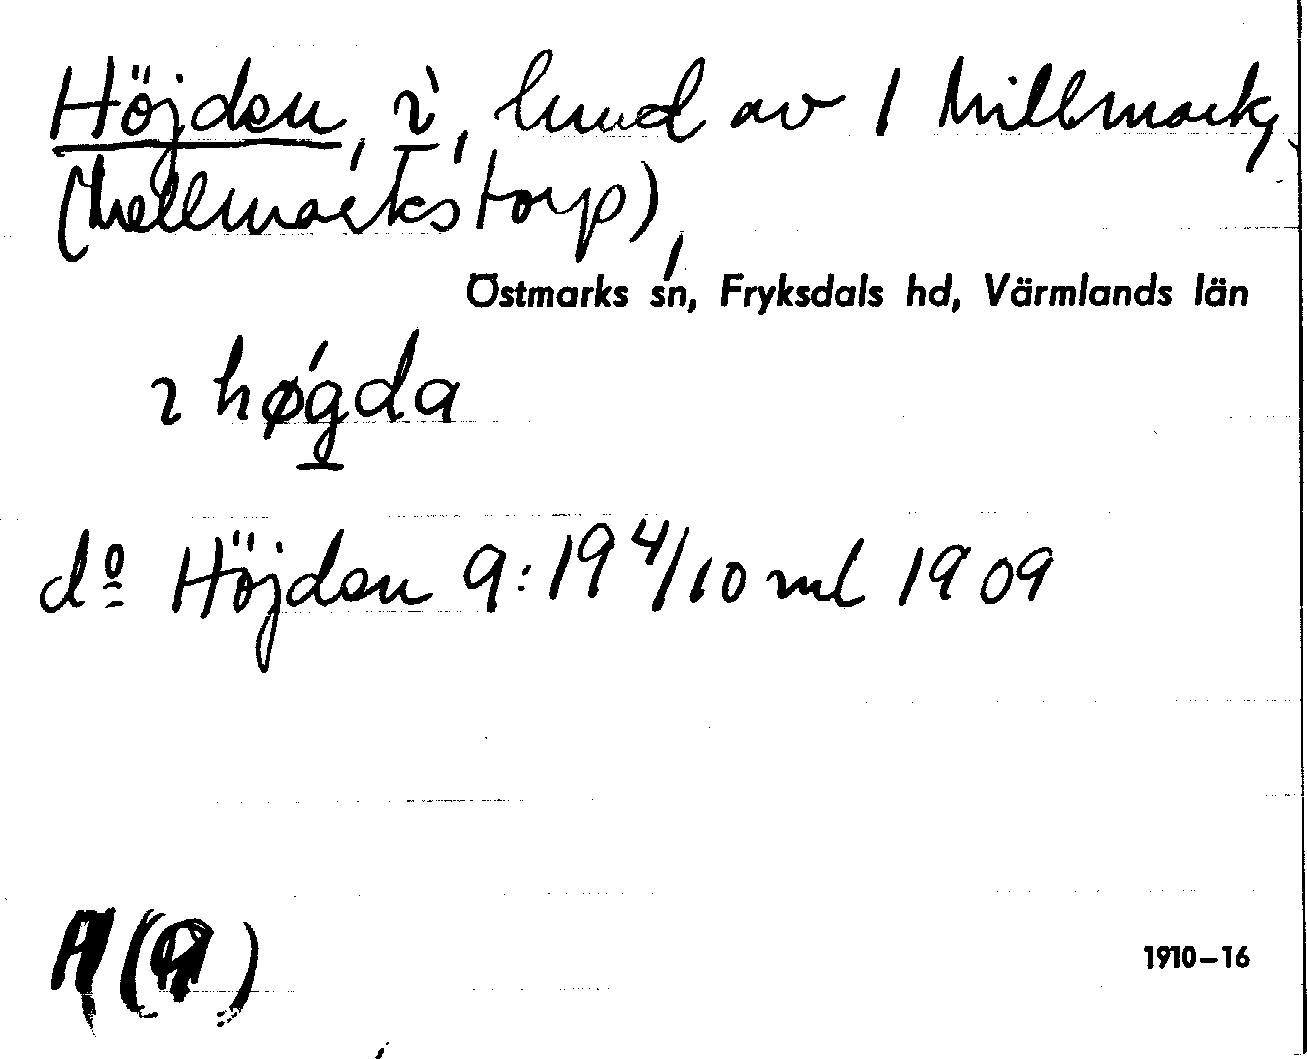 Höjden, i, lund av 1 Millmark,
(Mellmarkstorp),
Östmarks sn, Fryksdals hd, Värmlands län
ı høgda
dº Höjden 9:19 4/10 ml 1909
1910–16